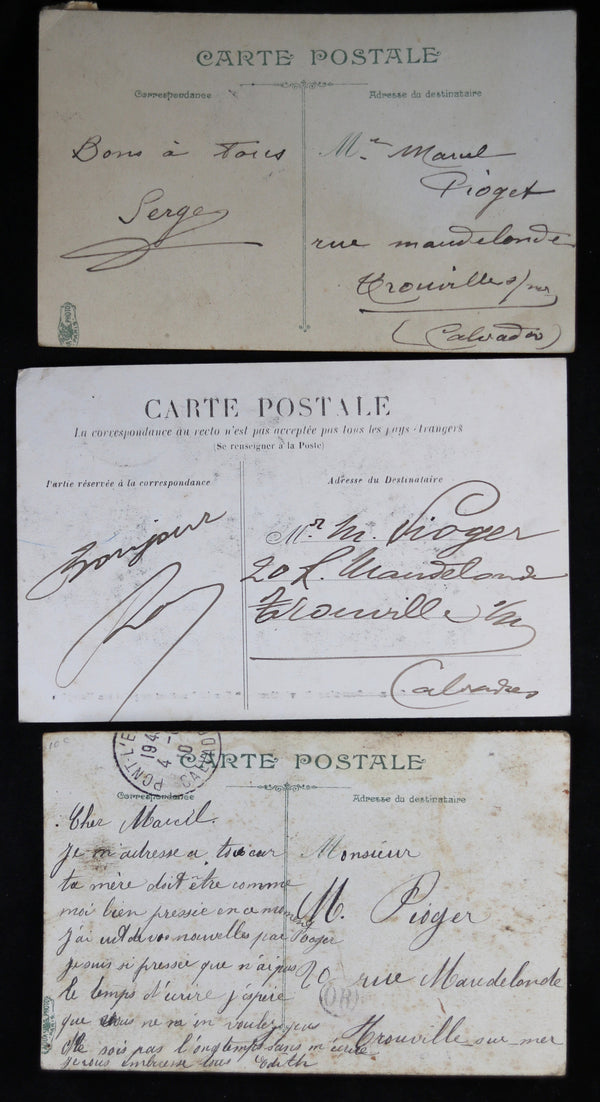 CARTE POSTALE
Correspondance
Adresse du destinataire
Bons à tous
Serge
Mr Marcel
Pioget
rue maudelonde
Trouville s/mer
(Calvados)
PHOTO
PARIS
CARTE POSTALE
La correspondance au recto n'est pas acceptée pas tous les pays étrangers
(Se renseigner à la Poste)
Partie réservée à la correspondance
Adresse du Destinataire
Bonjour
Mr. M. Pioger
20 R. Maudelonde
Trouville s/m
Calvados
PONT-L'E
19
4
CALVAD
CARTE POSTALE
Correspondance
Adresse du destinataire
Cher Marcil.
Je m'adresse a toi car
ta mère doit être comme
moi bien pressie en ce moment
j'ai eut de vos nouvelles par Pooger
je suis si pressee que n'ai pas
le temps d'écrire j'éspire
que vous ne m'en voulez pas
Ne sois pas l'ongtemps sans m'écrire
je vous embrasse tous Edith
Monsieur
M. Pioger
20 rue Maudelonde
OR
Trouville-sur-mer